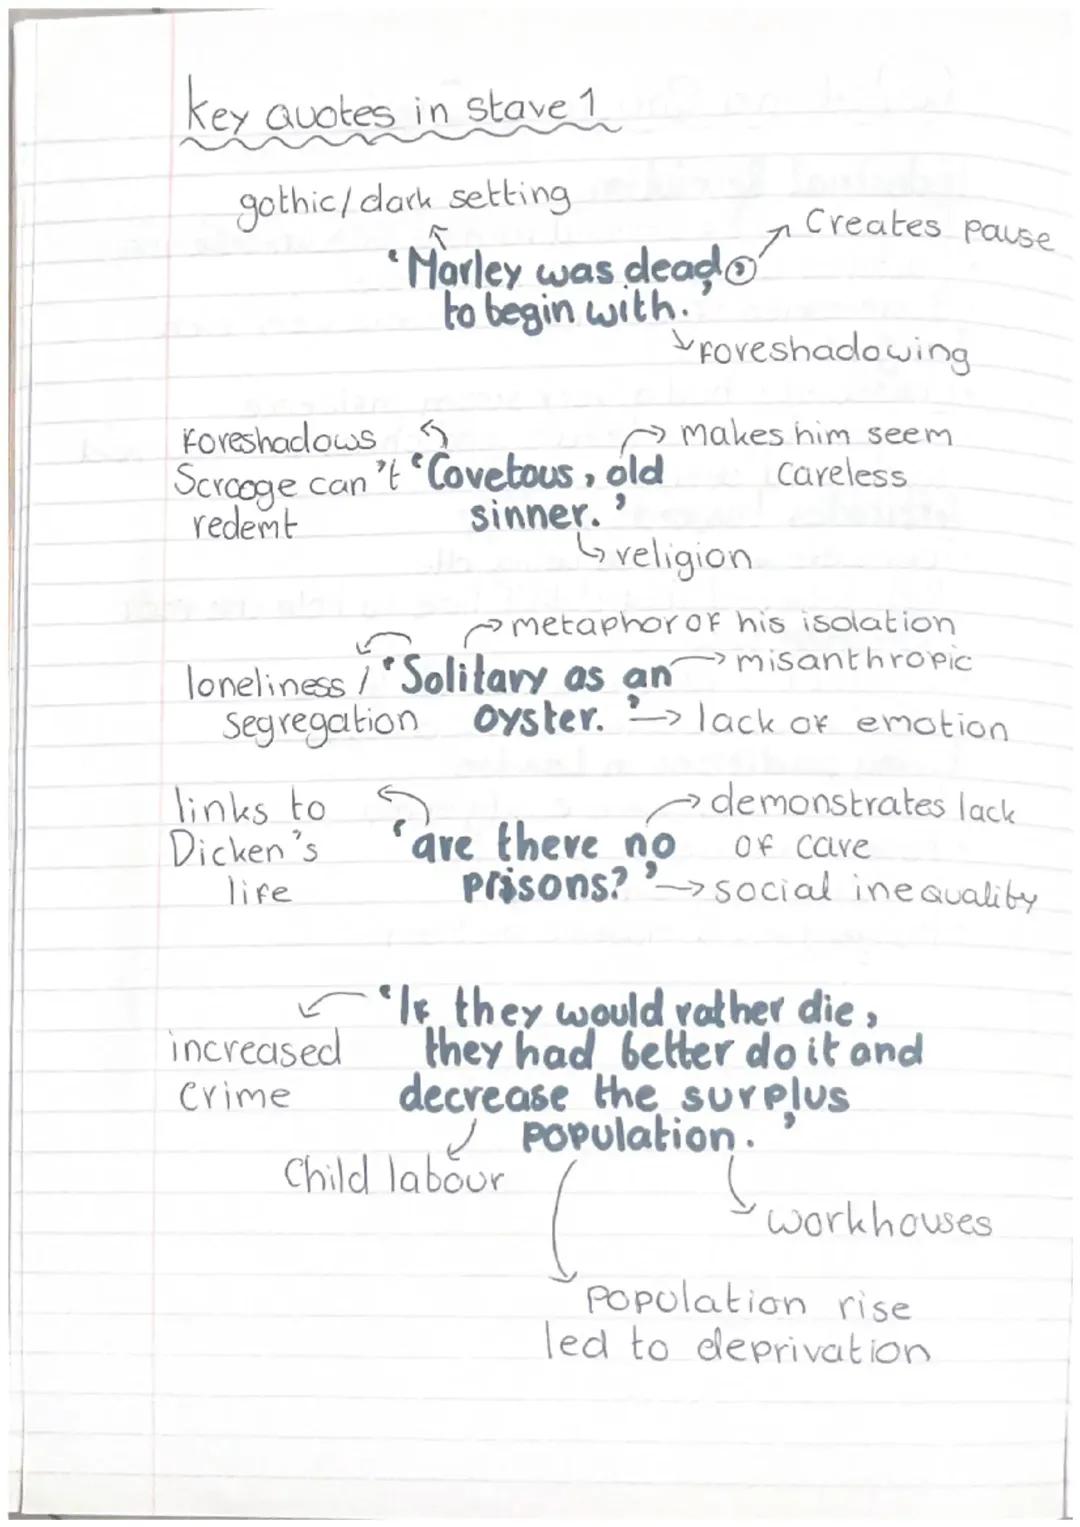 key quotes in stave 1
gothic/dark setting
Creates pause
'Marley was dead,
to begin with.'
foreshadowing
Foreshadows
Scrooge can't
redemt
makes him seem
careless
'Covetous, old
sinner.'
religion
metaphor of his isolation
misanthropic
loneliness /
segregation
'Solitary as an
oyster.'
lack of emotion
links to
Dicken's
life
demonstrates lack
of care
'are there no
prisons?'
social inequality
'If they would rather die,
they had better do it and
decrease the surplus
population.'
increased
crime
Child labour
workhouses
Population rise
led to deprivation